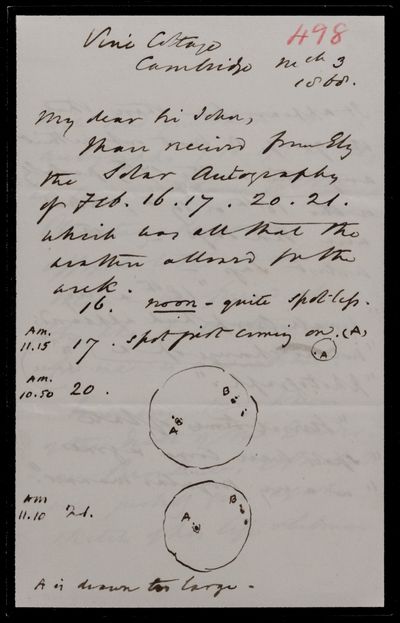 498
Vine Cottage
Cambridge Mch 3
1868.
My dear Sir John,
I have received from Ely
the Solar Autographs
of Feb. 16. 17. 20. 21.
which was all that the
weather allowed for the
week.
16. noon - quite spotless.
A.m. 11.15 17. spot just coming on. (A)
A
A.m. 10.50 20.
B
A
A.m. 11.10 21.
B
A
A is drawn too large -